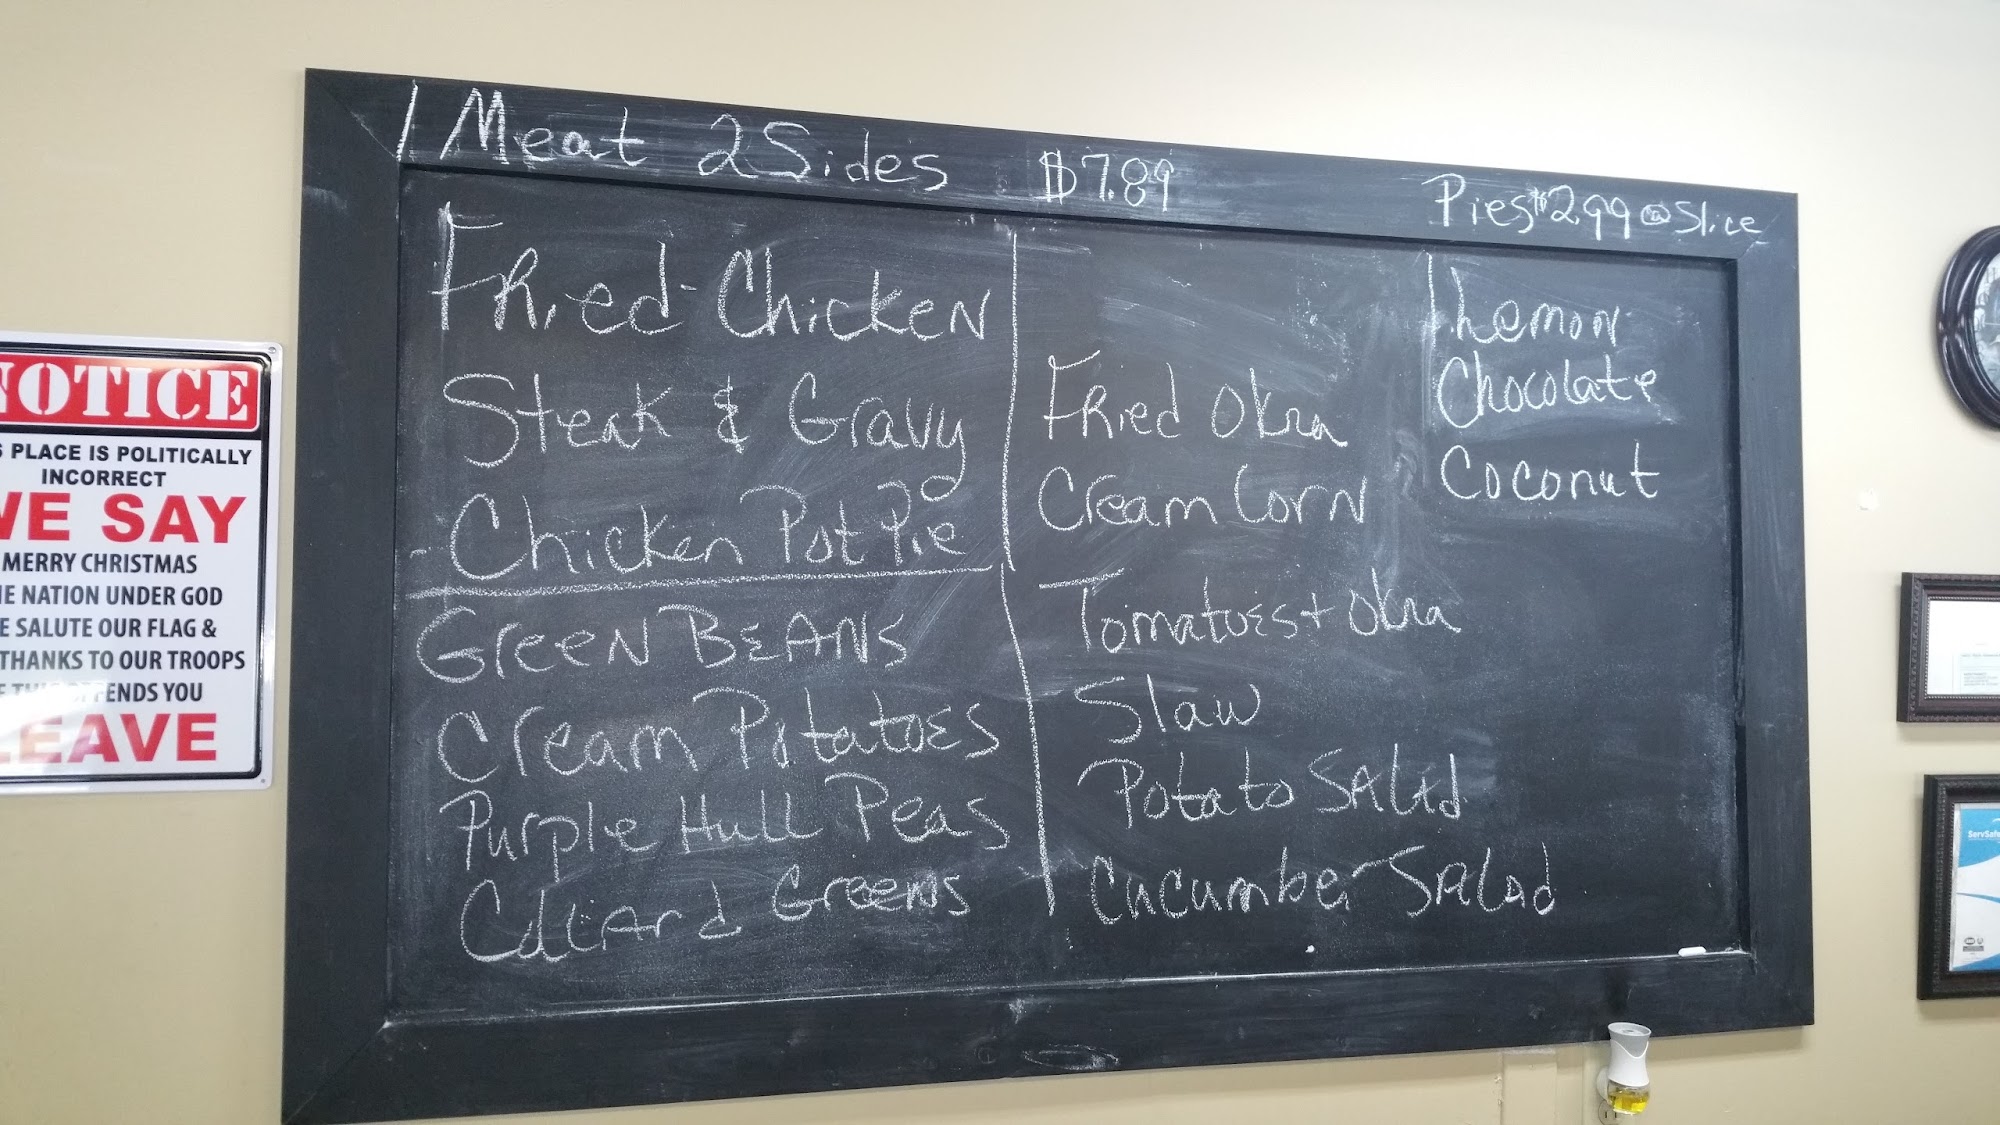 1 Meat 2 Sides $7.89
Pies $2.99 @ Slice
Fried Chicken
Steak & Gravy
Chicken Pot Pie
Green Beans
Cream Potatoes
Purple Hull Peas
Collard Greens
Fried Okra
Cream Corn
Tomatoes + Okra
Slaw
Potato Salad
Cucumber Salad
Lemon
Chocolate
Coconut
NOTICE
PLACE IS POLITICALLY
INCORRECT
WE SAY
MERRY CHRISTMAS
NATION UNDER GOD
SALUTE OUR FLAG &
THANKS TO OUR TROOPS
IF THIS OFFENDS YOU
LEAVE
ServSafe